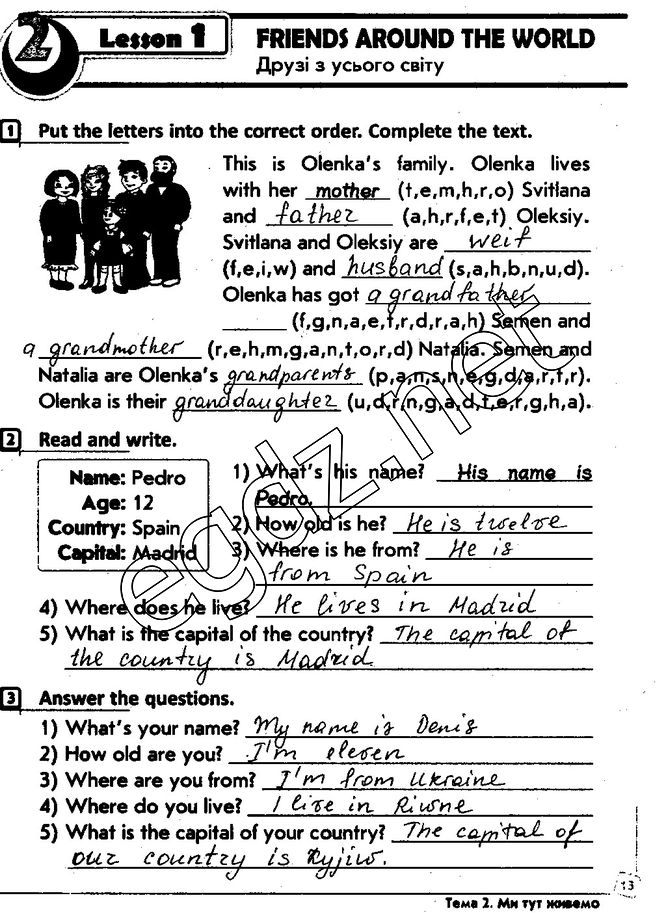 2 Lesson 1 FRIENDS AROUND THE WORLD
Друзі з усього світу
1 Put the letters into the correct order. Complete the text.
This is Olenka's family. Olenka lives
with her mother (t,e,m,h,r,o) Svitlana
and father (a,h,r,f,e,t) Oleksiy.
Svitlana and Oleksiy are weif
(f,e,i,w) and husband (s,a,h,b,n,u,d).
Olenka has got a grandfather
(f,g,n,a,e,t,r,d,r,a,h) Semen and
a grandmother (r,e,h,m,g,a,n,t,o,r,d) Natalia. Semen and
Natalia are Olenka's grandparents (p,a,n,s,n,e,g,d,a,r,t,r).
Olenka is their granddaughter (u,d,r,n,g,a,d,t,e,r,g,h,a).
2 Read and write.
Name: Pedro
Age: 12
Country: Spain
Capital: Madrid
1) What's his name? His name is
Pedro.
2) How old is he? He is twelve
3) Where is he from? He is
from Spain
4) Where does he live? He lives in Madrid
5) What is the capital of the country? The capital of
the country is Madrid
3 Answer the questions.
1) What's your name? My name is Denis
2) How old are you? I'm eleven
3) Where are you from? I'm from Ukraine
4) Where do you live? I live in Riwne
5) What is the capital of your country? The capital of
our country is Kyjiw.
13
Тема 2. Ми тут живемо
egdz.net